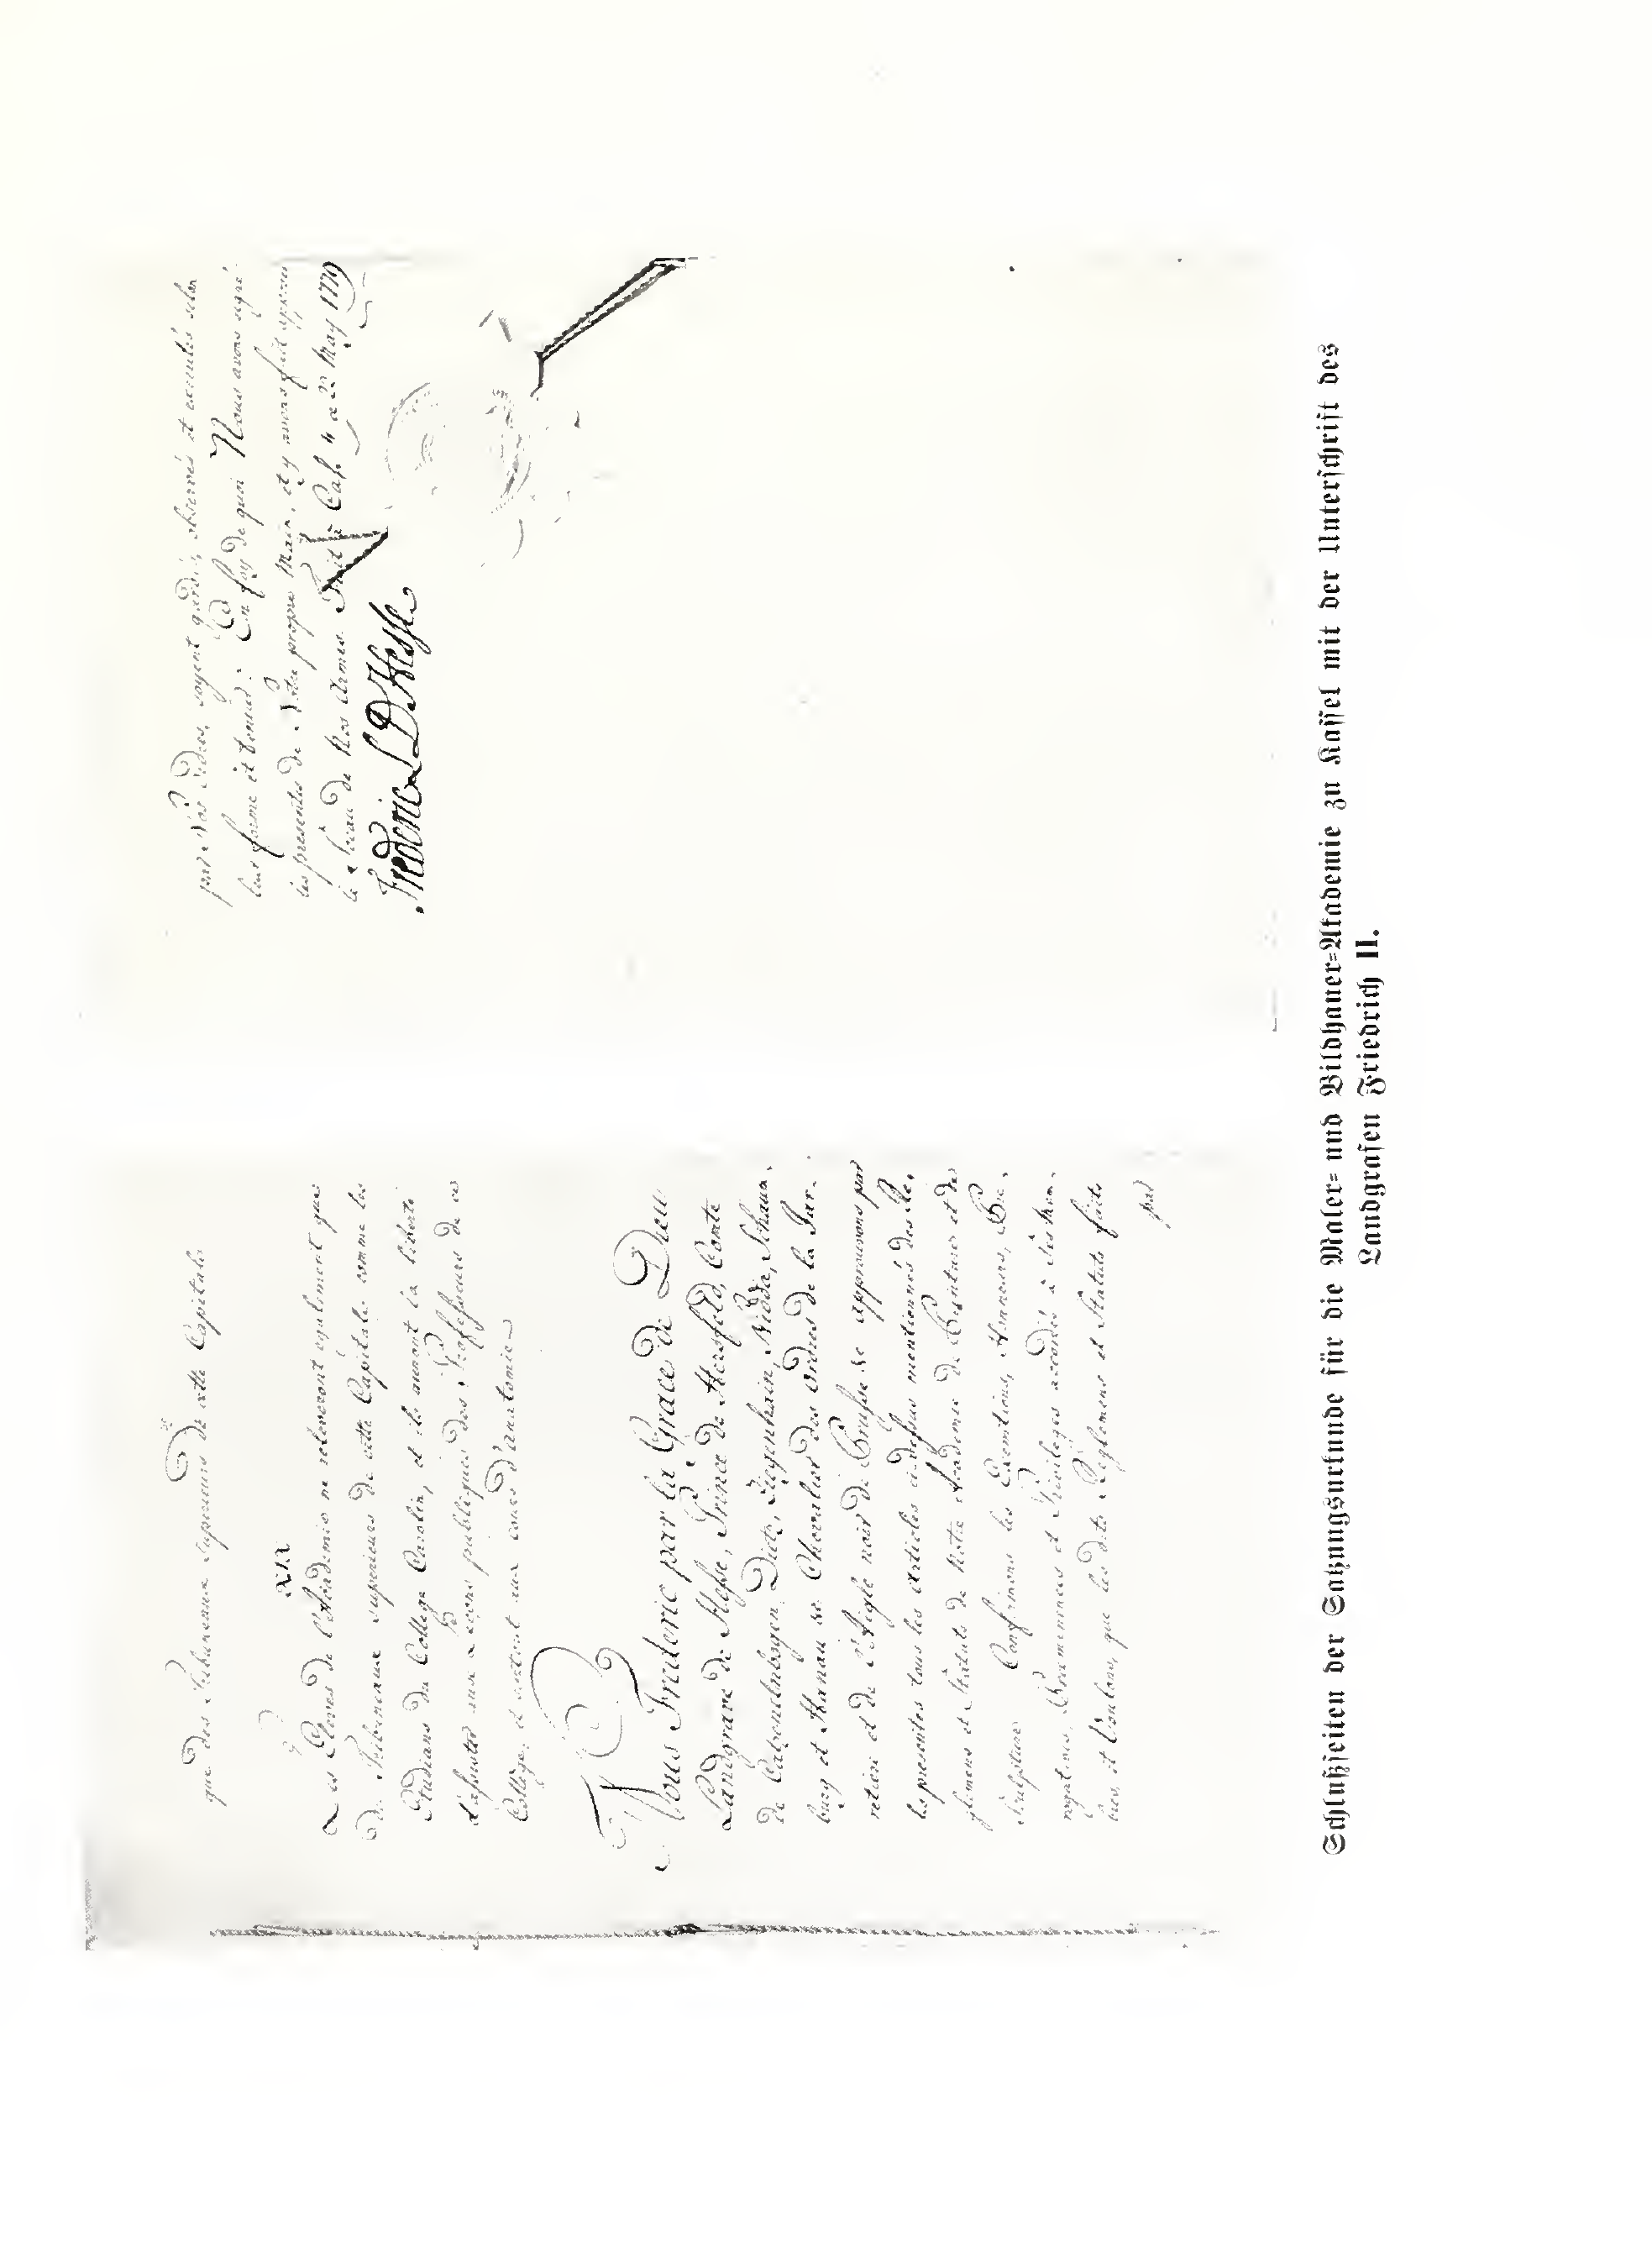 que des Tribunaux superieurs de cette Capitale
XIX
Les Eleves de l'Academie ne releveront egalement que
des Tribunaux superieurs de cette Capitale comme les
Etudians du College Carolin, et ils auront la liberté
d'assister aux Leçons publiques des Professeurs de ce
College, et surtout aux cours d'anatomie
Nous Frideric par la Grace de Dieu
Landgrave de Hesse, Prince de Hersfeld, Comte
de Catzenelnbogen, Dietz, Ziegenhain, Nidda, Schaum-
burg et Hanau &c. Chevalier des ordres de la Jar-
retiere et de l'Aigle noir de Prusse &c. approuvons par
les presentes tous les Articles ci-dessus mentionnés des Re-
glemens et Statuts de Notre Academie de Peinture et de
Sculpture Confirmons les Exemtions, Honneurs, Pre-
rogatives, Preeminences et Privileges accordés à ses Mem-
bres, et Voulons, que les dits Reglemens et Statuts faits
par
par Nos Ordres, soyent gardés, observés et executés selon
leur forme et teneur: En foy de quoi Nous avons signé
les presentes de Notre propre Main, et y avons fait apposer
le Sceau de Nos Armes. Fait à Cassel ce May 1779
Frederic L D Hesse
Schlußseiten der Satzungsurkunde für die Maler- und Bildhauer-Akademie zu Kassel mit der Unterschrift des
Landgrafen Friedrich II.